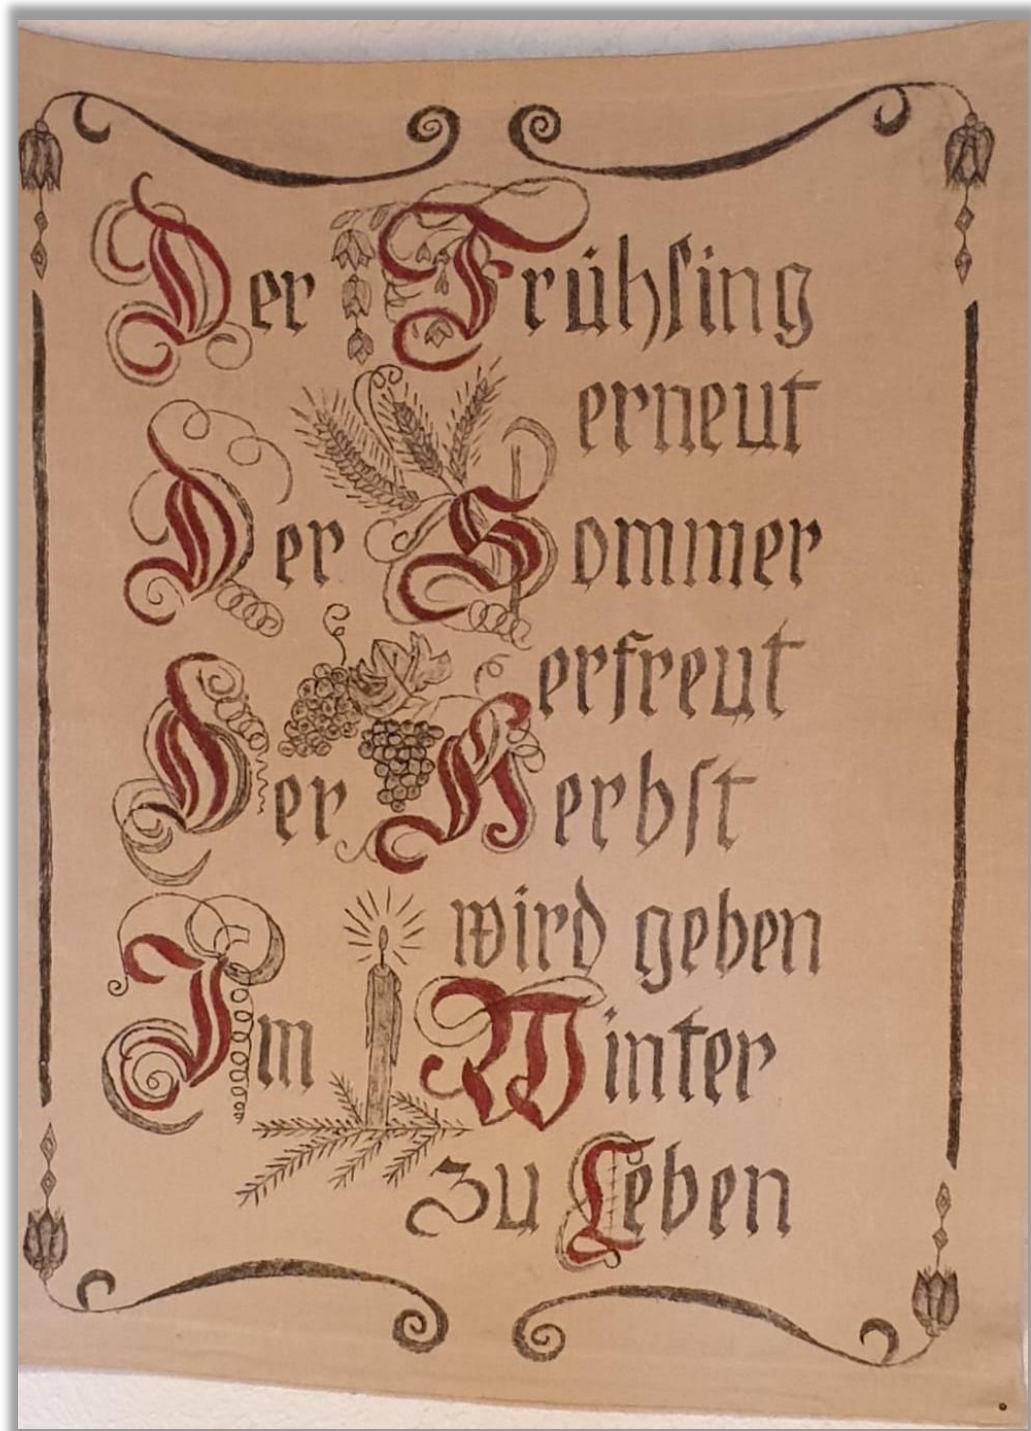 Der Frühling
erneut
Der Sommer
erfreut
Der Herbst
wird geben
Im Winter
zu Leben